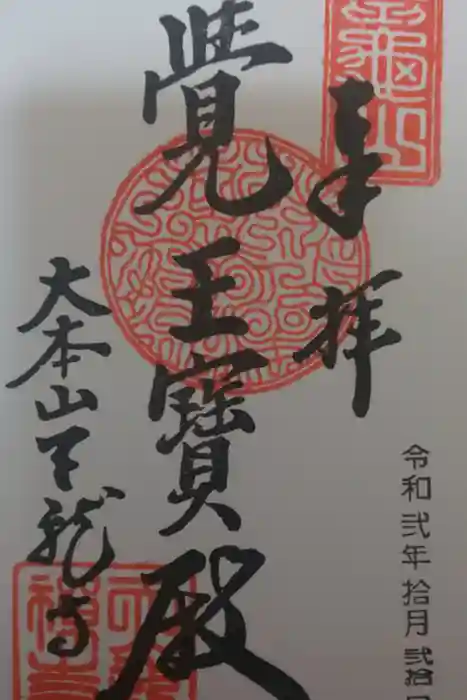 奉拝
覺王寶殿
大本山天龍寺
令和弐年拾月弐拾